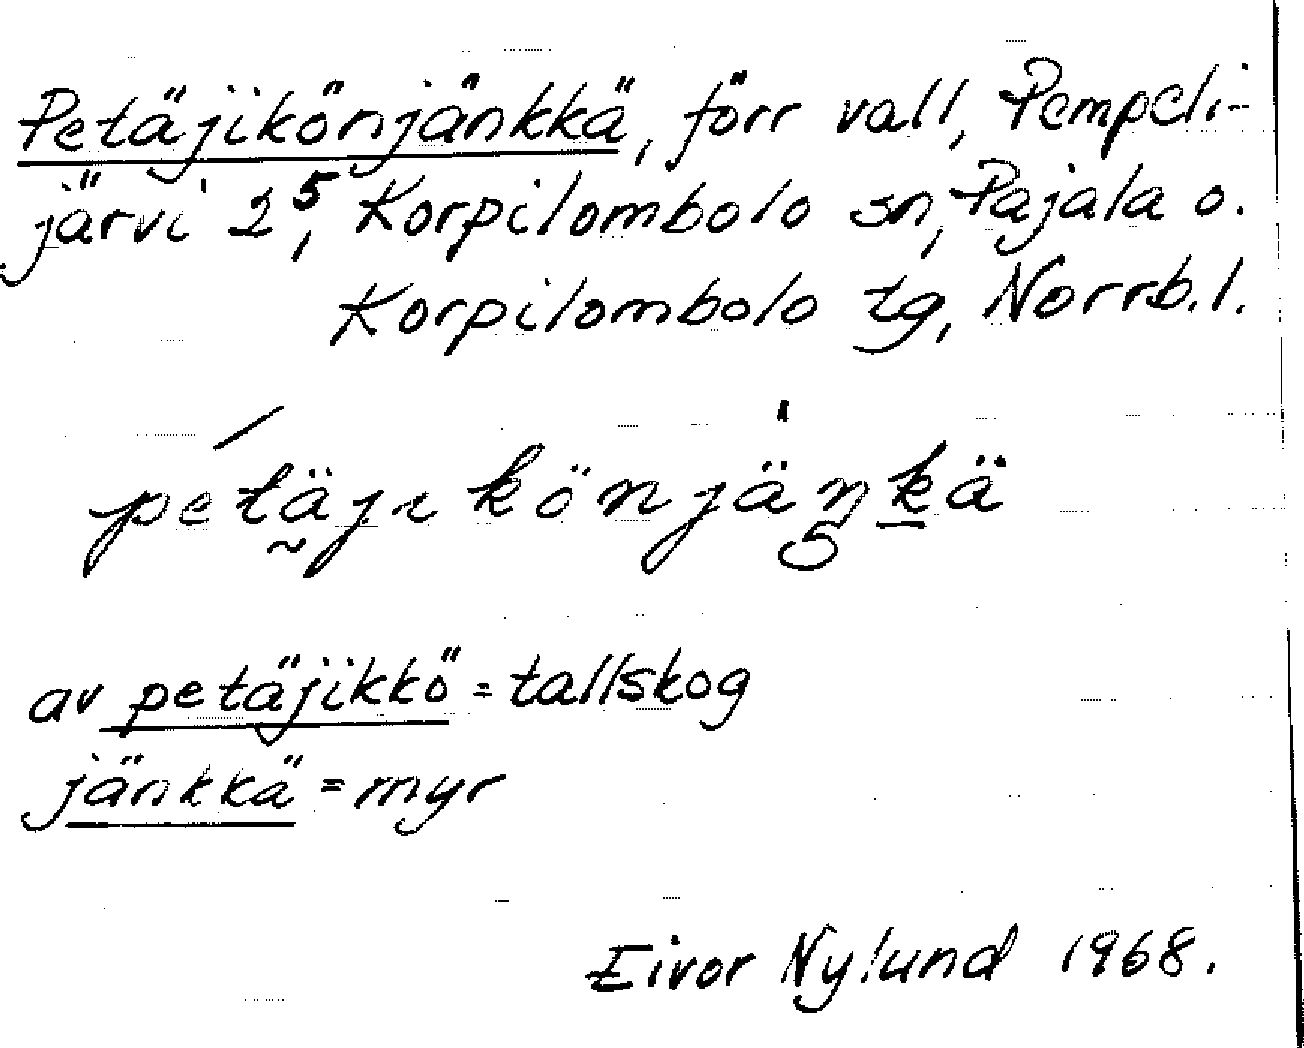 Petäjikönjänkkä, förr vall, Pempeli-
järvi 2⁵, Korpilombolo sn, Pajala o.
Korpilombolo tg, Norrb.l.
petäjɩkönjäŋkä
av petäjikkö = tallskog
jänkkä = myr
Eivor Nylund 1968.